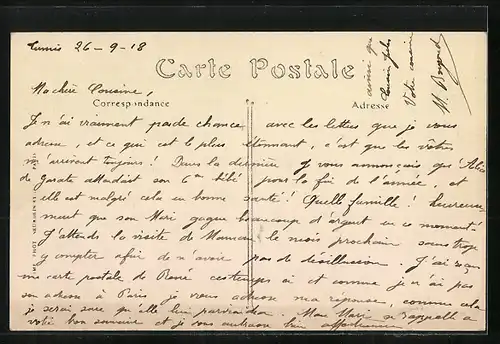 Tunis 26-9-18
Carte Postale
Ma chère Cousine,
Correspondance
Adresse
Je n'ai vraiment pas de chance avec les lettres que je vous
adresse, et ce qui est le plus étonnant, c'est que les vôtres
m'arrivent toujours ! Dans la dernière je vous annonçais que Alice
de attendait son 6me bébé pour la fin de l'année, et
elle est malgré cela en bonne santé ! Quelle famille ! heureuse-
ment que son Mari gagne beaucoup d'argent en ce moment !
J'attends la visite de Maman le mois prochain sans trop
y compter afin de n'avoir pas de désillusion. J'ai reçu
une carte postale de René ces temps ci et comme je n'ai pas
son adresse à Paris je vous adresse ma réponse, comme cela
je serai sûre qu'elle lui parviendra. Mon Mari se rappelle à
votre bon souvenir et je vous embrasse bien affectueusement
ainsi que
Votre cousine
M.